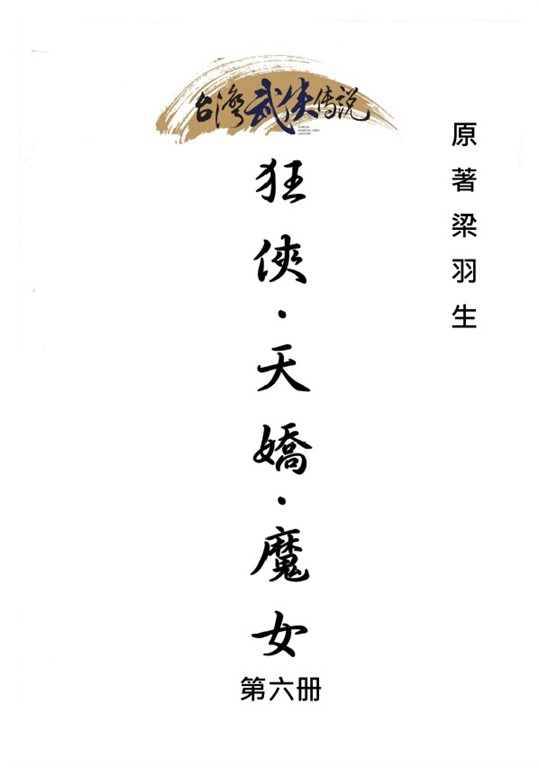 台灣武俠传説
原著梁羽生
狂俠·天嬌·魔女
第六册